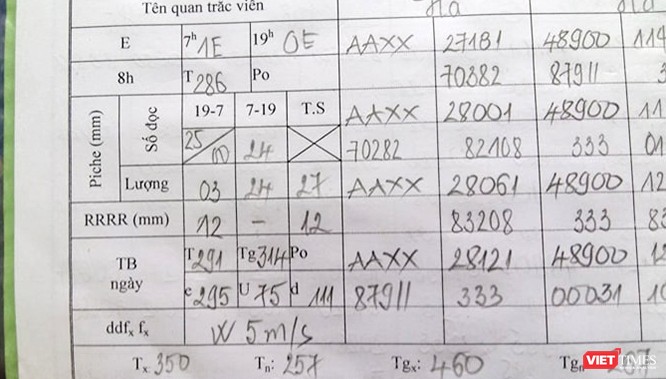 Tên quan trắc viên Ha
E 7h 1E 19h OE AAXX 27181 48900 114
8h T 286 Po 70382 87911 3
Piche (mm) Số đọc 19-7 7-19 T.S AAXX 28001 48900 11
25/00 24 70282 82108 333 01
Lượng 03 24 27 AAXX 28061 48900 12
RRRR (mm) 12 - 12 83208 333 83
TB ngày T 291 Tg 314 Po AAXX 28121 48900
e 295 U 75 d 111 87911 333 00031
ddfx fx W 5m/s
Tx: 350 Tn: 257 Tgx: 460 Tgn
VIETTIMES